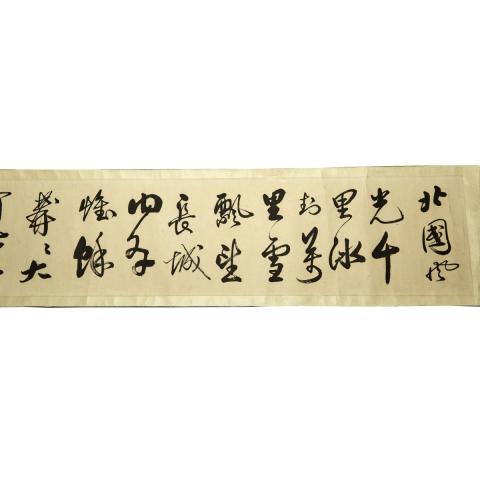 北國風
光千
里冰
封萬
里雪
飄望
長城
內外
惟餘
莽々大